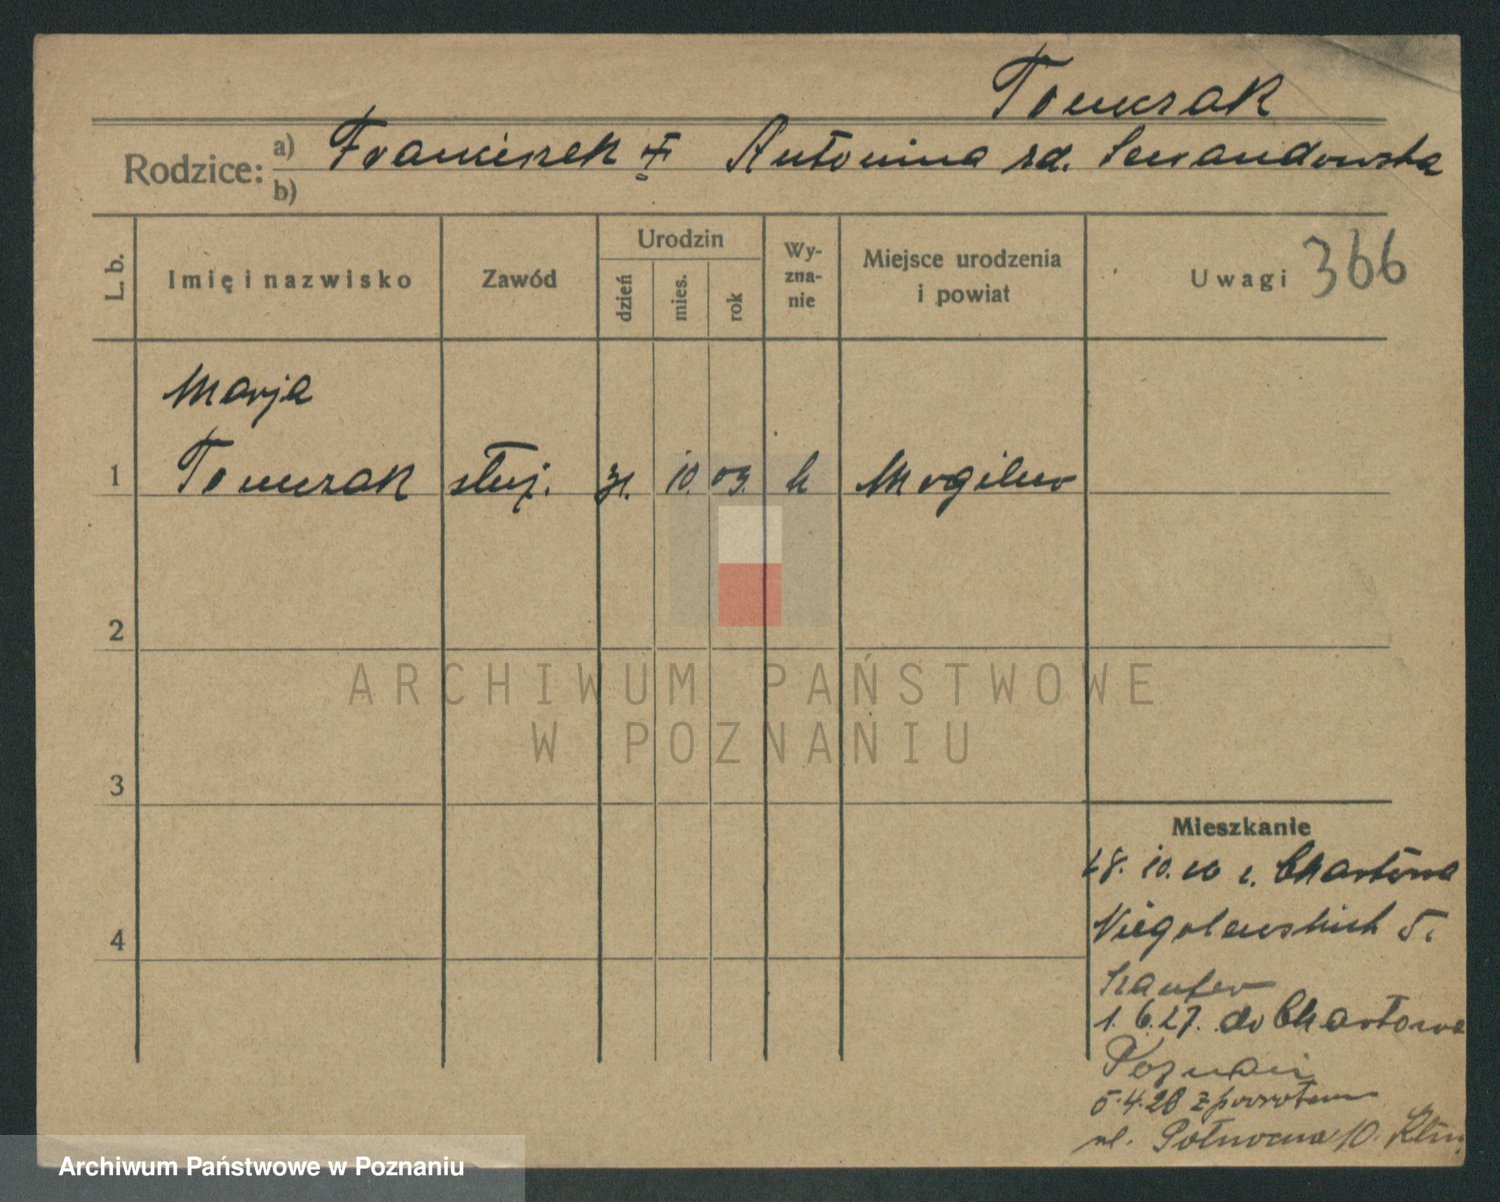 Tomczak
Rodzice: a) Franciszek Antonina zd. Lewandowska
b)
L. b.
Imię i nazwisko
Zawód
Urodzin
dzień
mies.
rok
Wy-
zna-
nie
Miejsce urodzenia
i powiat
Uwagi 366
Marja
1 Tomczak służ. 31. 10. 03. k Mogilno
2
3
4
Mieszkanie
28. 10. 26 z. Chartowa
Niegolewskich 5.
Szaufer
1.6.27. do Chartowa
Poznań
5.4.28 z powrotem
ul. Północna 10.
ARCHIWUM PAŃSTWOWE
W POZNANIU
Archiwum Państwowe w Poznaniu